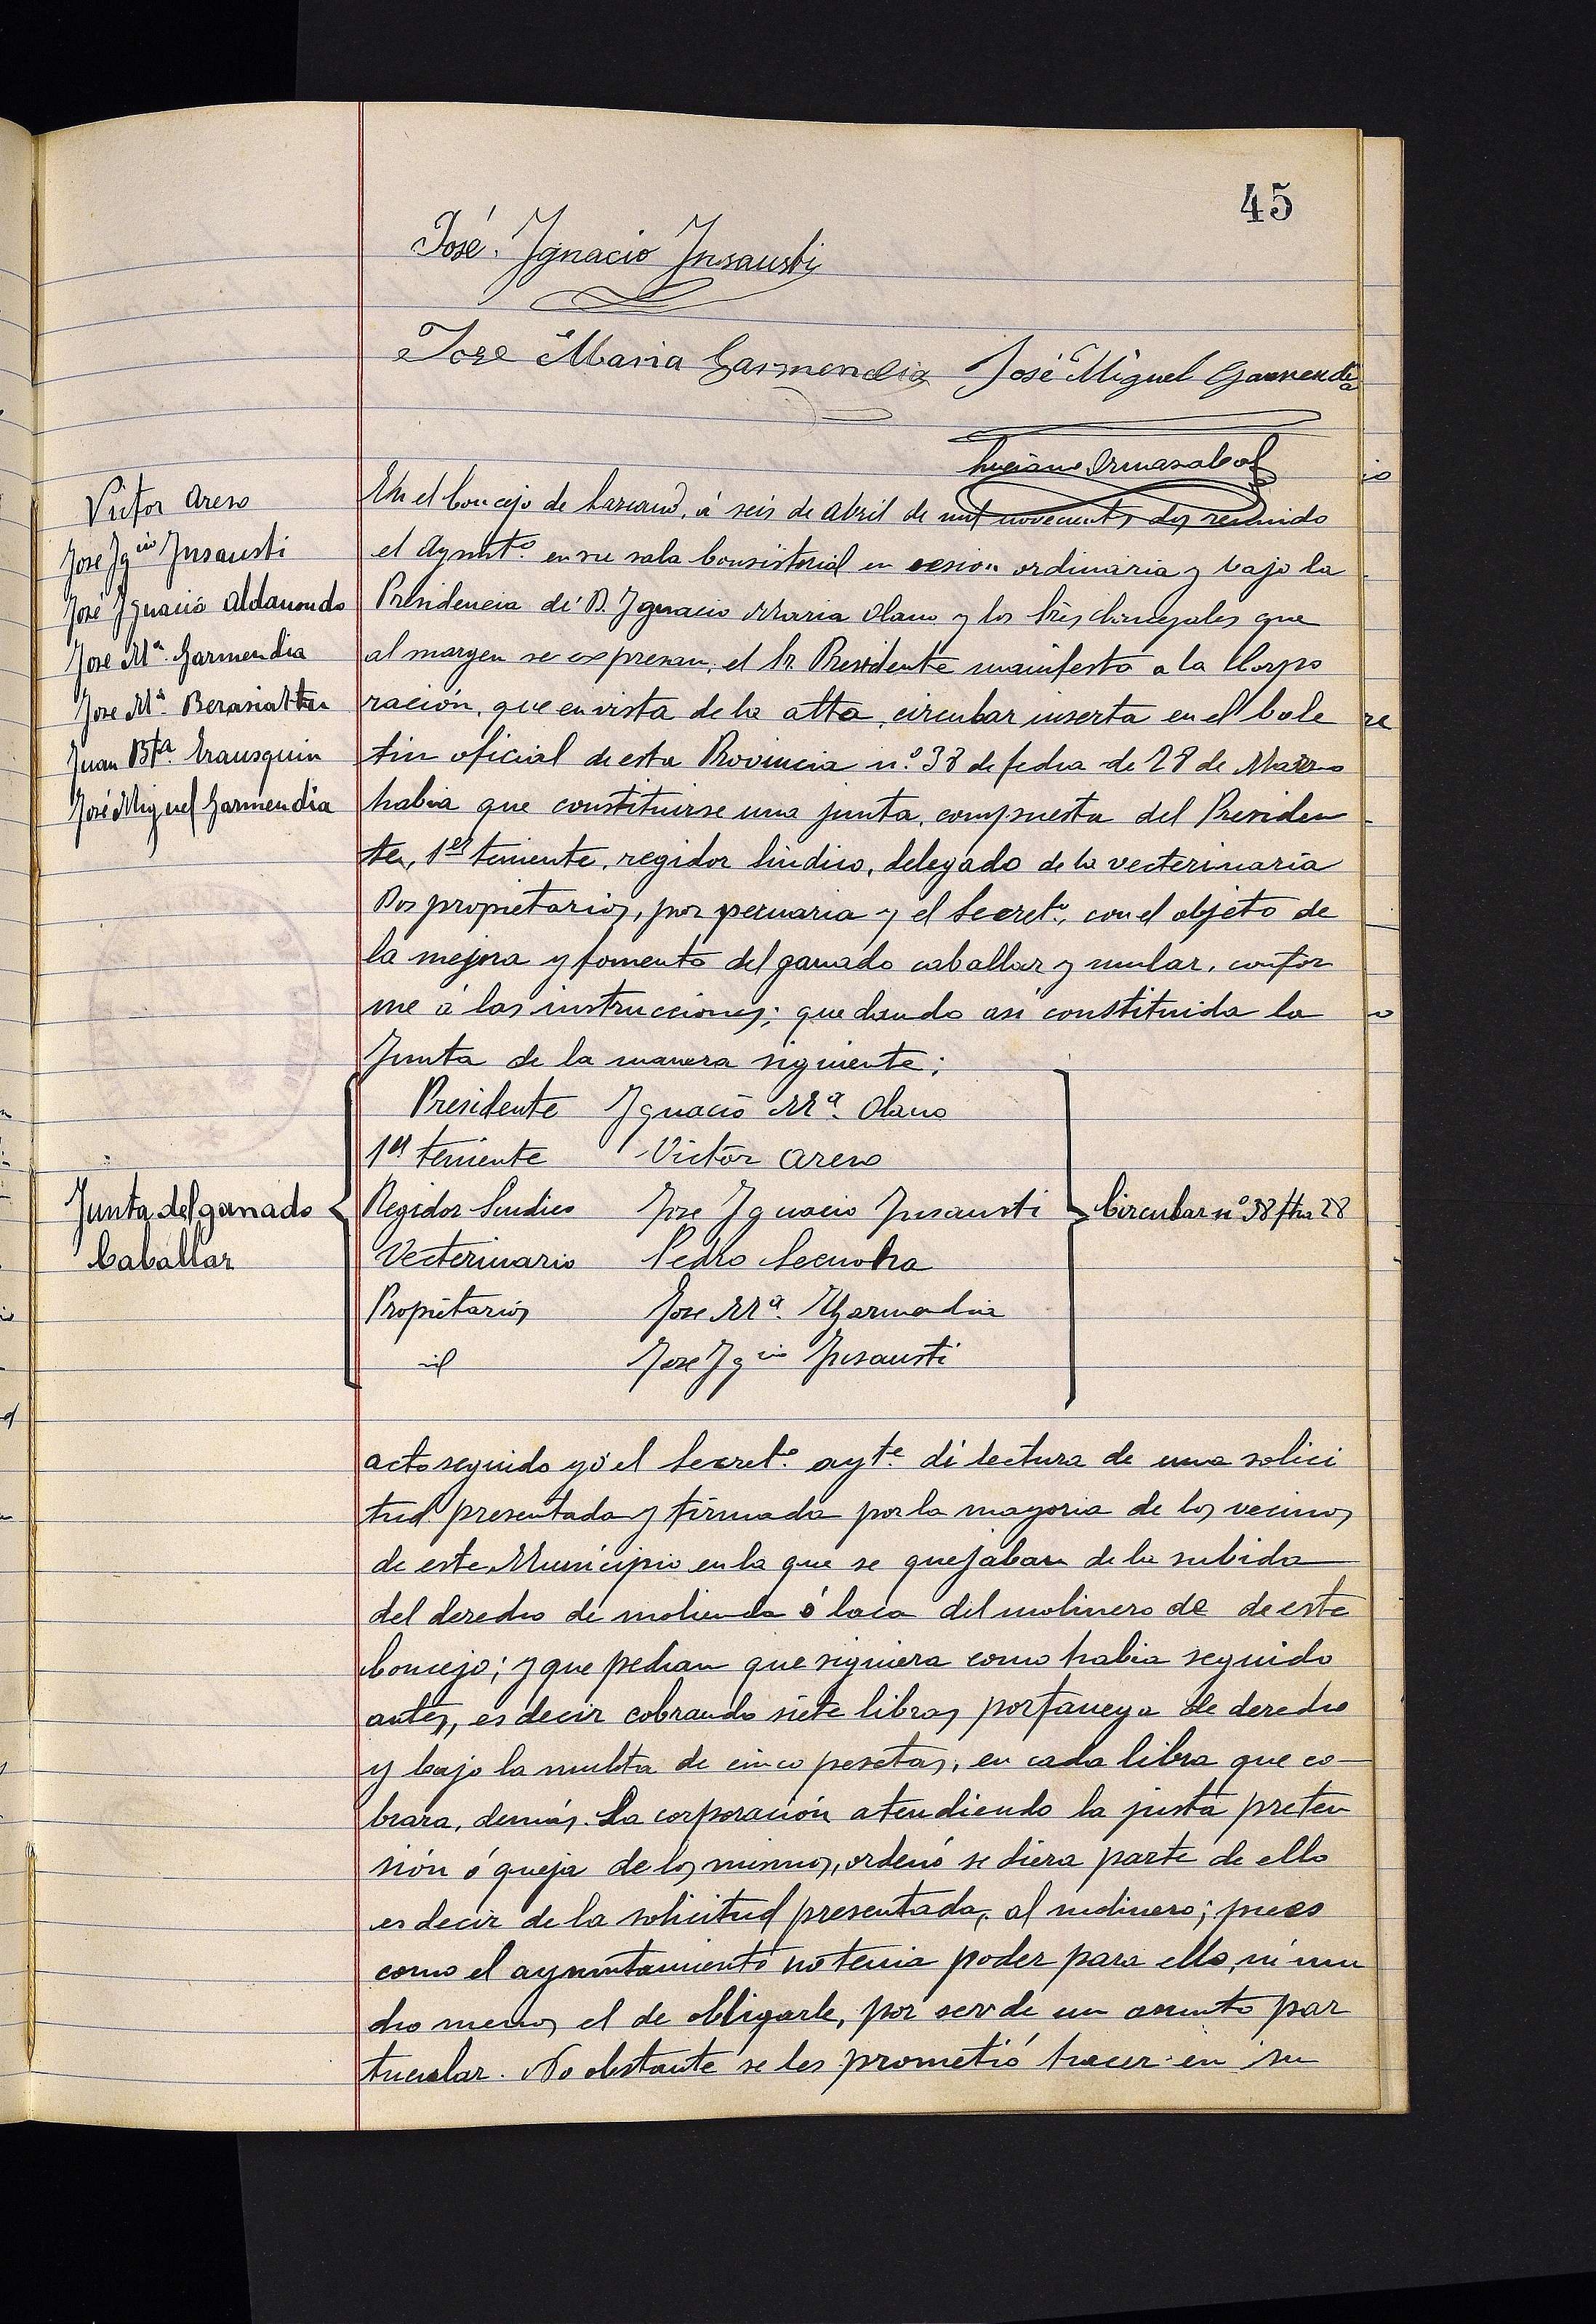 45
José Ignacio Insausti
Jose Maria Garmendia José Miguel Garmendia
Luciano Ormazabal
Victor Areso
José Ygcio Insausti
José Ygnacio Aldanondo
Jose Ma. Garmendia
Jose Ma. Berasiartu
Juan Bta. Erausquin
José Miguel Garmendia
En el Concejo de Lazcano, á seis de Abril de mil novecientos dos reunido
el Aymto. en su sala Consistorial en sesion ordinaria y bajo la
Presidencia de D. Ygnacio Maria Olano y los Sres Concejales que
al margen se expresan, el Sr. Presidente manifesto a la Corpo
ración, que en vista de la alta, circular inserta en el bole
tin oficial de esta Provincia n.º 38 de fecha de 28 de Marzo
habia que constituirse una junta, compuesta del Presiden
te, 1er teniente, regidor Sindico, delegado de la vecterinaria
Dos propietarios, por pecuaria y el Secreto., con el objeto de
la mejora y fomento del ganado caballar y mular, confor
me á las instrucciones; quedando asi constituida la
Junta de la manera siguiente;
Junta del ganado
Caballar
Presidente Ygnacio Ma. Olano
1er teniente Victor Areso
Regidor Sindico Jose Ygnacio Insausti
Vecterinario Pedro
Propietarios Jose Ma. Garmendia
id Jose Ygcio Insausti
Circular nº 38 fha 28
acto seguido yó el Secreto. ayte. dí lectura de una solici
tud presentada y firmada por la mayoria de los vecinos
de este Municipio en la que se quejaban de la subida
del derecho de molienda ó laca del molinero de de este
Concejo; y que pedian que siguiera como habia seguido
antes, es decir cobrando siete libras por fanega de derecho
y bajo la multa de cinco pesetas, en cada libra que co-
brara, demás. La corporación atendiendo la justa preten
sión ó queja de los mismos, ordenó se diera parte de ello
es decir de la solicitud presentada, al molinero; pues
como el ayuntamiento no tenia poder para ello, ni mu
cho menos el de obligarle, por ser de un asunto par
ticular. No obstante se les prometió hacer en su